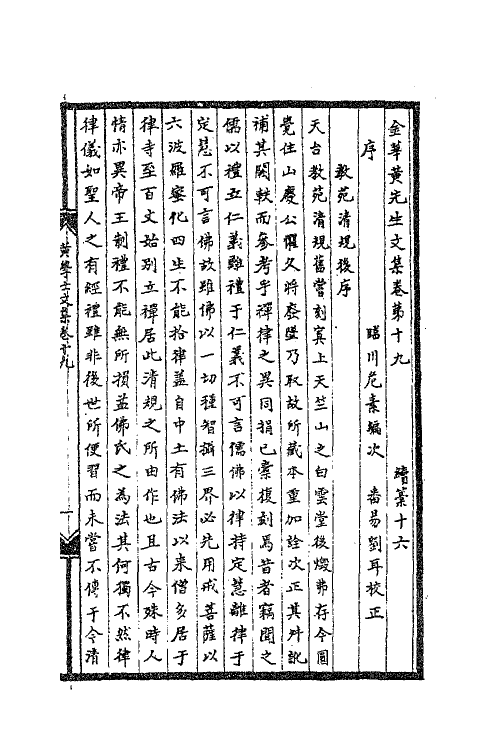 金華黃先生文集卷第十九　　續藁十六
臨川危素編次　番易劉耳校正
序
教苑清規後序
天台教苑清規舊嘗刻寘上天竺山之白雲堂後燬弗存今圓
覺住山慶公懼久將廢墜乃取故所藏本重加詮次正其舛訛
補其闕軼而參考乎禪律之異同捐已橐復刻焉昔者竊聞之
儒以禮立仁義離禮于仁義不可言儒佛以律持定慧離律于
定慧不可言佛故雖佛以一切種智攝三界必先用戒菩薩以
六波羅蜜化四生不能捨律蓋自中土有佛法以來僧多居于
律寺至百丈始別立禪居此清規之所由作也且古今殊時人
情亦異帝王制禮不能無所損益佛氏之為法其何獨不然律
律儀如聖人之有經禮雖非後世所便習而未嘗不傳于今清
黃學士文集卷十九
一